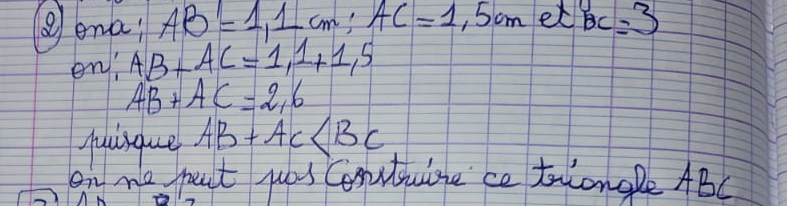 ② ona; AB = 1,1 cm; AC = 1,5cm et BC = 3
on; AB + AC = 1,1 + 1,5
AB + AC = 2,6
puisque AB + AC < BC
on ne peut pas Construire ce triangle ABC